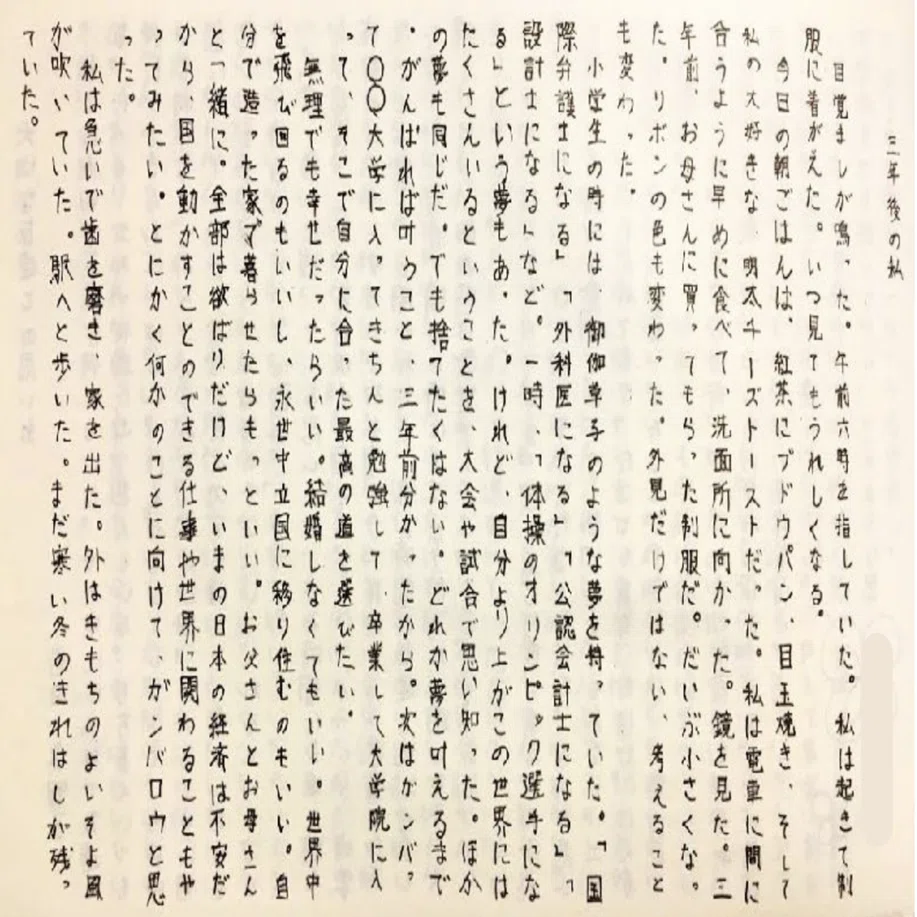 三年後の私
目覚ましが鳴った。午前六時を指していた。私は起きて制
服に着がえた。いつ見てもうれしくなる。
今日の朝ごはんは、紅茶にブドウパン、目玉焼き、そして
私の大好きな、明太チーズトーストだった。私は電車に間に
合うように早めに食べて、洗面所に向かった。鏡を見た。三
年前、お母さんに買ってもらった制服だ。だいぶ小さくなっ
た。リボンの色も変わった。外見だけではない、考えること
も変わった。
小学生の時には、御伽草子のような夢を持っていた。「国
際弁護士になる」「外科医になる」「公認会計士になる」「
設計士になる」など。一時、「体操のオリンピック選手にな
る」という夢もあった。けれど、自分より上がこの世界には
たくさんいるということを、大会や試合で思い知った。ほか
の夢も同じだ。でも捨てたくはない。どれか夢を叶えるまで
。がんばれば叶うこと、三年前分かったから。次はガンバっ
て〇〇大学に入ってきちんと勉強して、卒業して大学院に入
って、そこで自分に合った最高の道を選びたい。
無理でも幸せだったらいい。結婚しなくてもいい。世界中
を飛び回るのもいいし、永世中立国に移り住むのもいい。自
分で造った家で暮らせたらもっといい。お父さんとお母さん
と一緒に。全部は欲ばりだけど、いまの日本の経済は不安だ
から、国を動かすことのできる仕事や世界に関わることもや
ってみたい。とにかく何かのことに向けて、ガンバロウと思
った。
私は急いで歯を磨き、家を出た。外はきもちのよいそよ風
が吹いていた。駅へと歩いた。まだ寒い冬のきれはしが残っ
ていた。